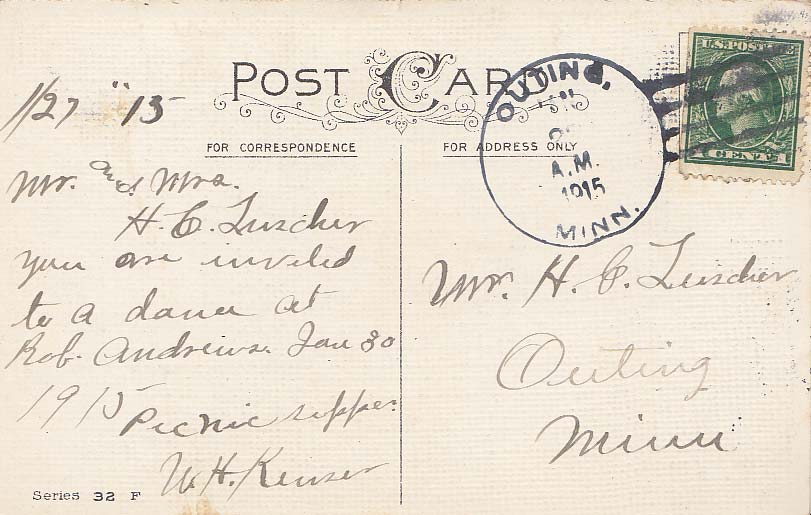 POST CARD
FOR CORRESPONDENCE
FOR ADDRESS ONLY
1/27 "15
Mr. and Mrs.
H. C. Luscher
you are invited
to a dance at
Rob. Andrews. Jan 30
1915 Picnic supper
W. H. Kenser
Series 32 F
OUTING,
A.M.
1915
MINN.
U.S. POSTAGE
Mr. H. C. Luscher
Outing
Minn